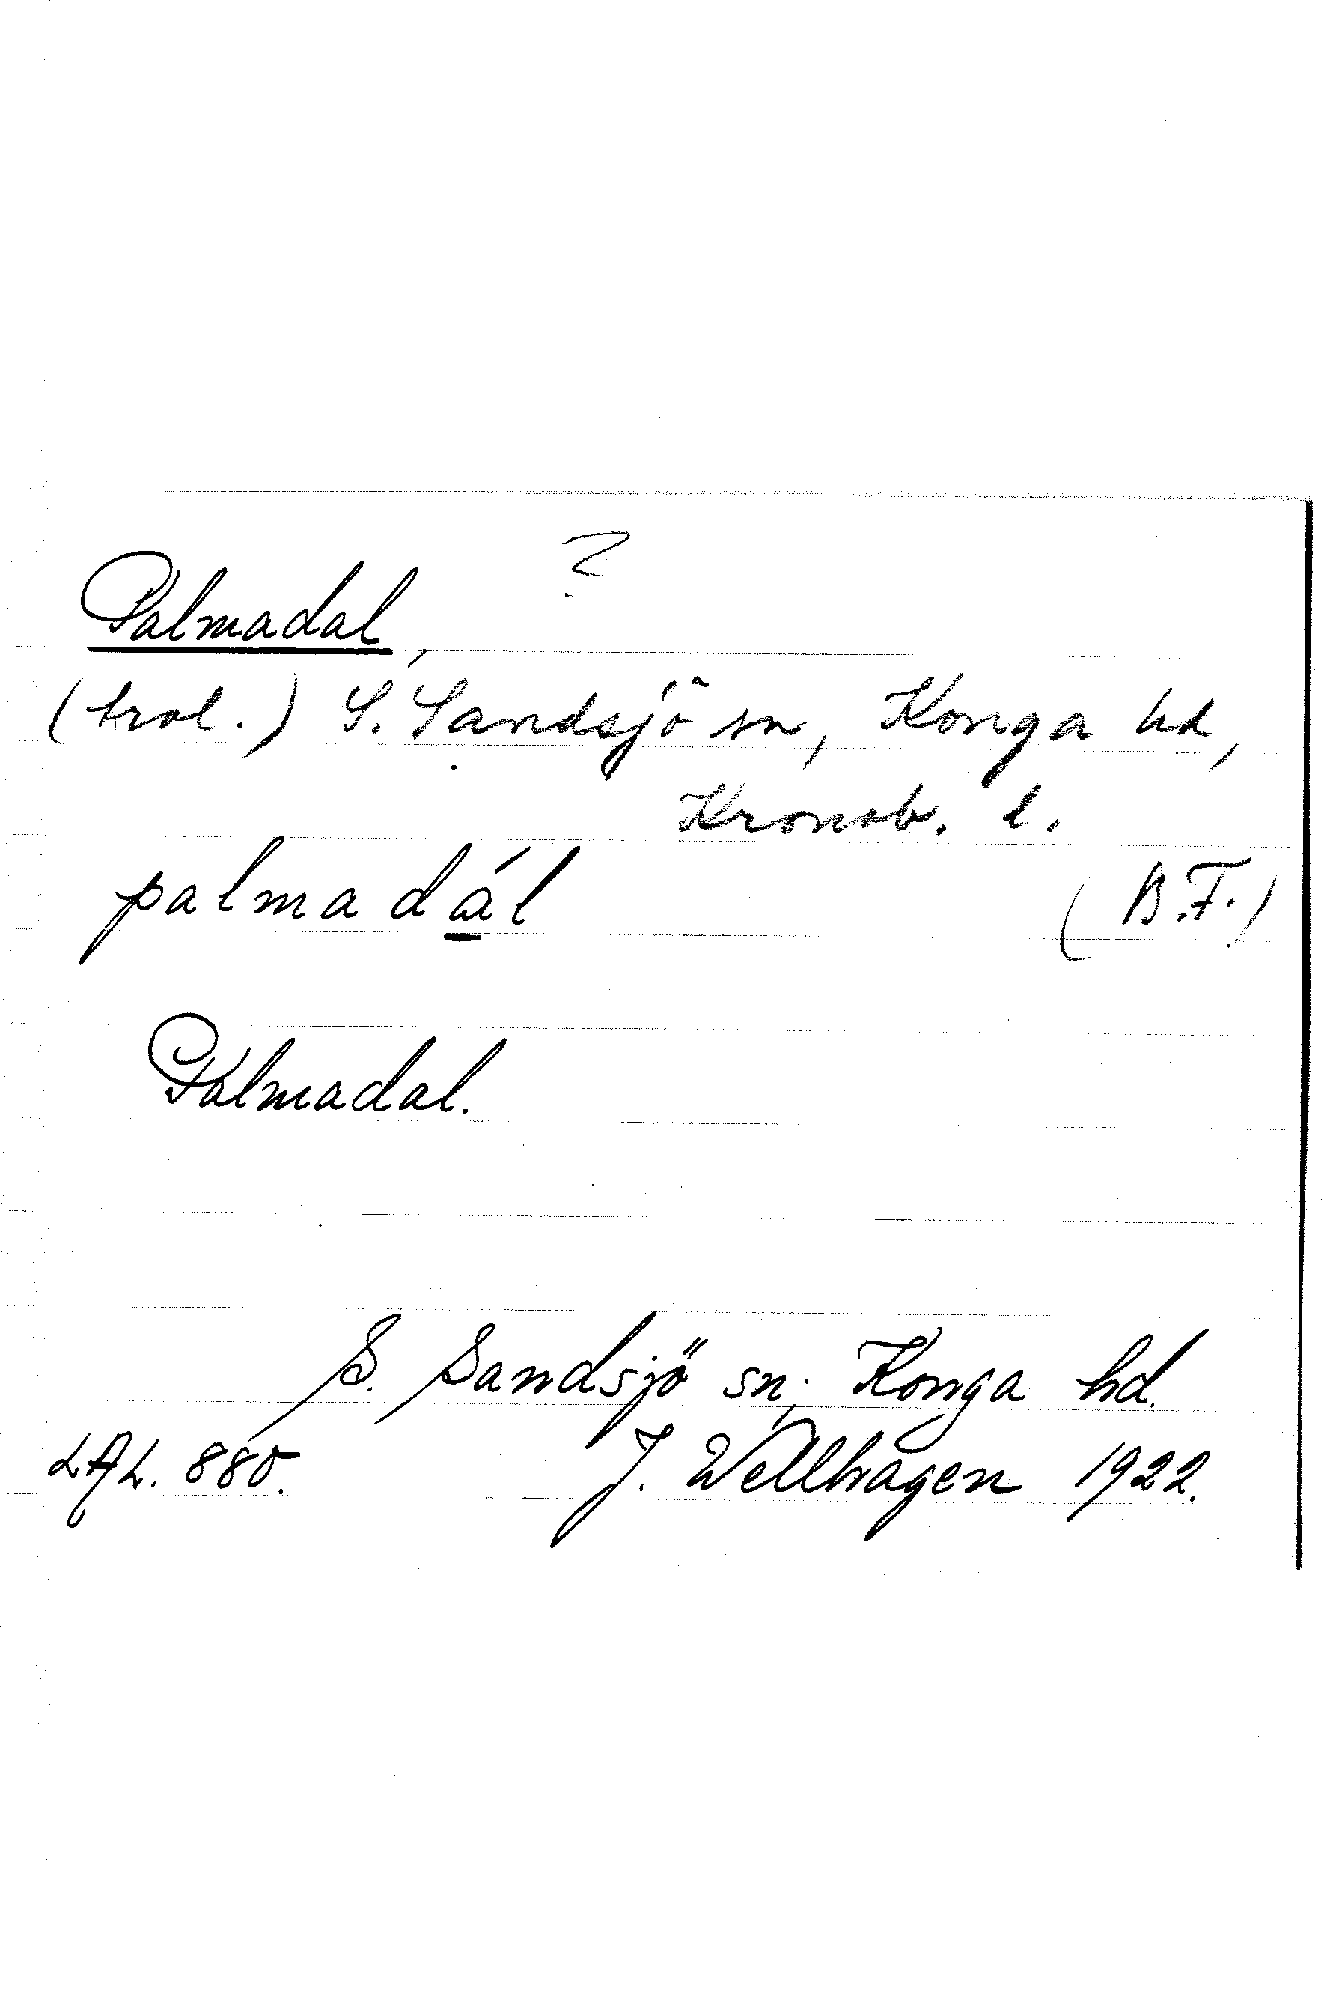 Palmadal, ?
(trol.) S. Sandsjö sn, Konga hd,
Kronob. l.
palmadál (B.F.)
Palmadal.
S. Sandsjö sn, Konga hd.
LAL. 880. J. Wellhagen 1922.